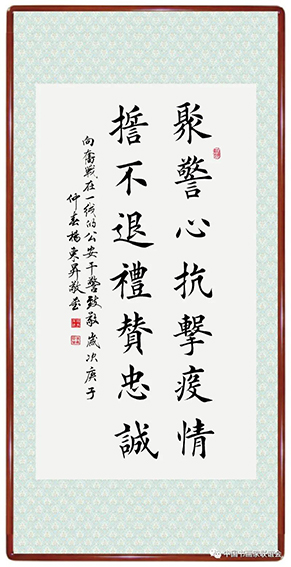 聚警心抗擊疫情
誓不退禮贊忠誠
向奮戰在一线的公安干警致敬 歲次庚子
仲春楊東昇敬書
中国书画家联谊会